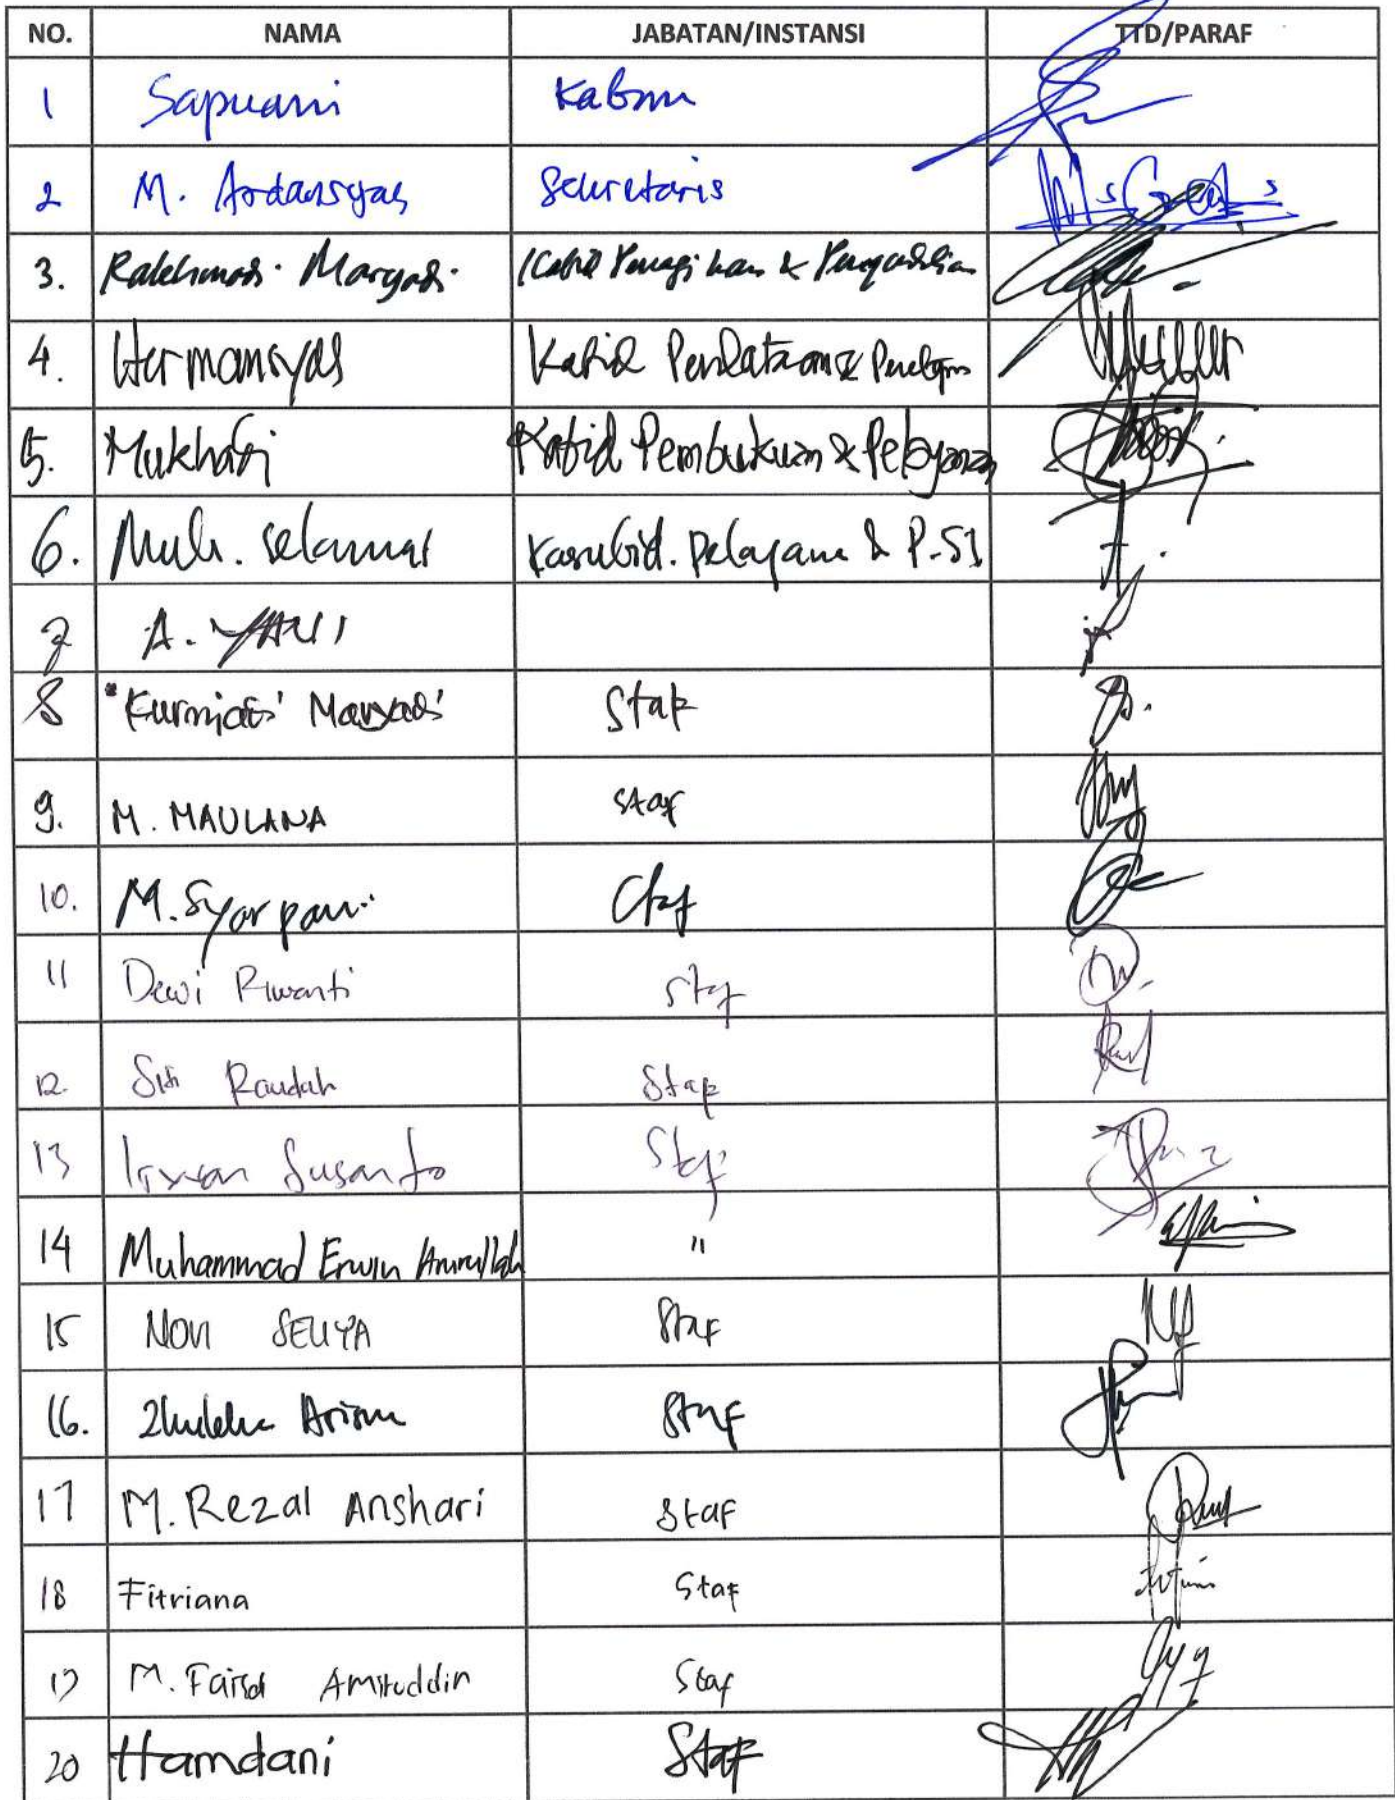 NO. NAMA JABATAN/INSTANSI TTD/PARAF
1 Sapuani Kaban
2 M. Ardansyah Sekretaris
3. Rakhmadi Maryadi Kabid Penagihan &
4. Hermansyah Kabid Pendataan &
5. Mukhari Kabid Pembukuan & Pelayanan
6. Muh. Selamat Kasubid. Pelayanan & P-SI
7 A. YANI
8 Kurniadi Maryadi Staf
9. M. MAULANA Staf
10. M. Syarpani Staf
11 Dewi Riwanti Staf
12. Siti Raudah Staf
13 Irwan Susanto Staf
14 Muhammad Erwin Amrullah "
15 NOVI SELIYA Staf
16. Staf
17 M. Rezal Anshari Staf
18 Fitriana Staf
19 M. Faisal Amiruddin Staf
20 Hamdani Staf